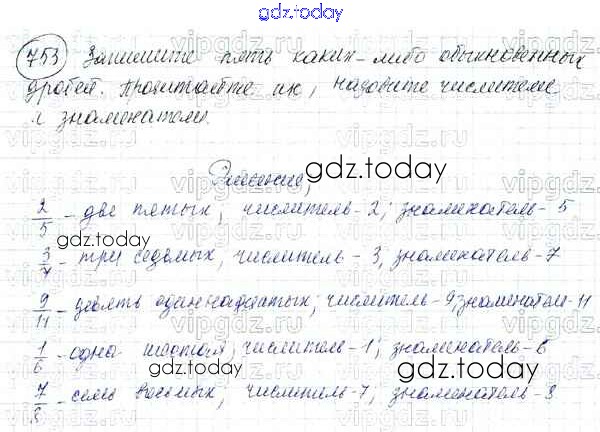 gdz.today
753 Запишите пять каких-либо обыкновенных
дробей. Прочитайте их, назовите числители
и знаменатели.
Решение,
gdz.today
2/5 - две пятых, числитель - 2; знаменатель - 5
gdz.today
3/7 - три седьмых, числитель - 3, знаменатель - 7
9/11 - девять одиннадцатых; числитель - 9 знаменатель - 11
1/6 - одна шестая, числитель - 1; знаменатель - 6
gdz.today
7/8 - семь восьмых, числитель - 7, знаменатель - 8
gdz.today